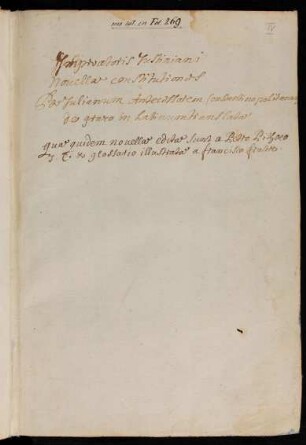 Imperatoris Justiniani
novellæ constitutiones
Per Julianum Antecessorem Constantinopolitanum
de græco in Latinum translatæ
quæ quidem novellæ editæ sunt a Petro Pithoeo
glossatio illustratæ a francisco